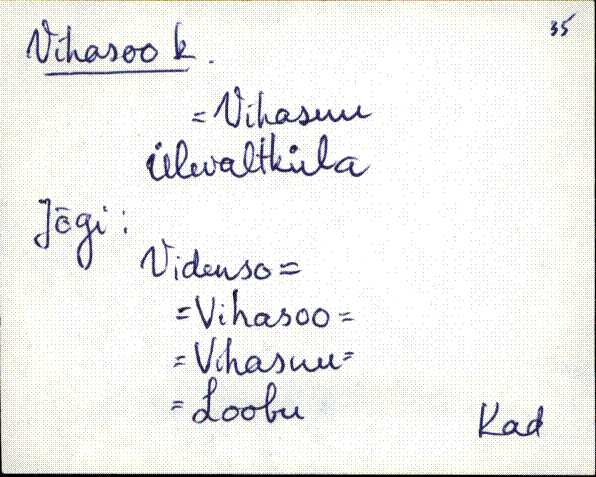 35
Vihasoo k.
= Vihasuu
ülevaltküla
Jõgi:
Videnso =
= Vihasoo =
= Vihasuu =
= Loobu
Kad